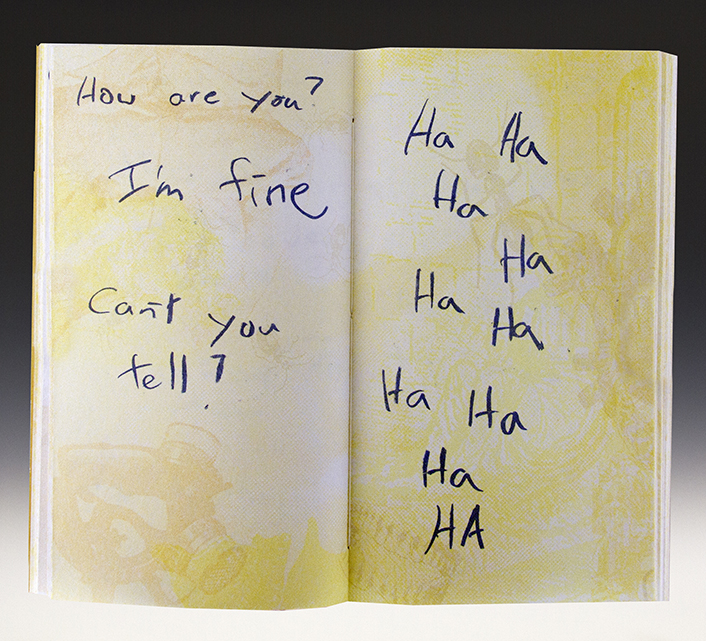 How are you?
I'm fine
Can't you
tell?
Ha Ha
Ha
Ha
Ha
Ha
Ha
Ha
Ha
HA